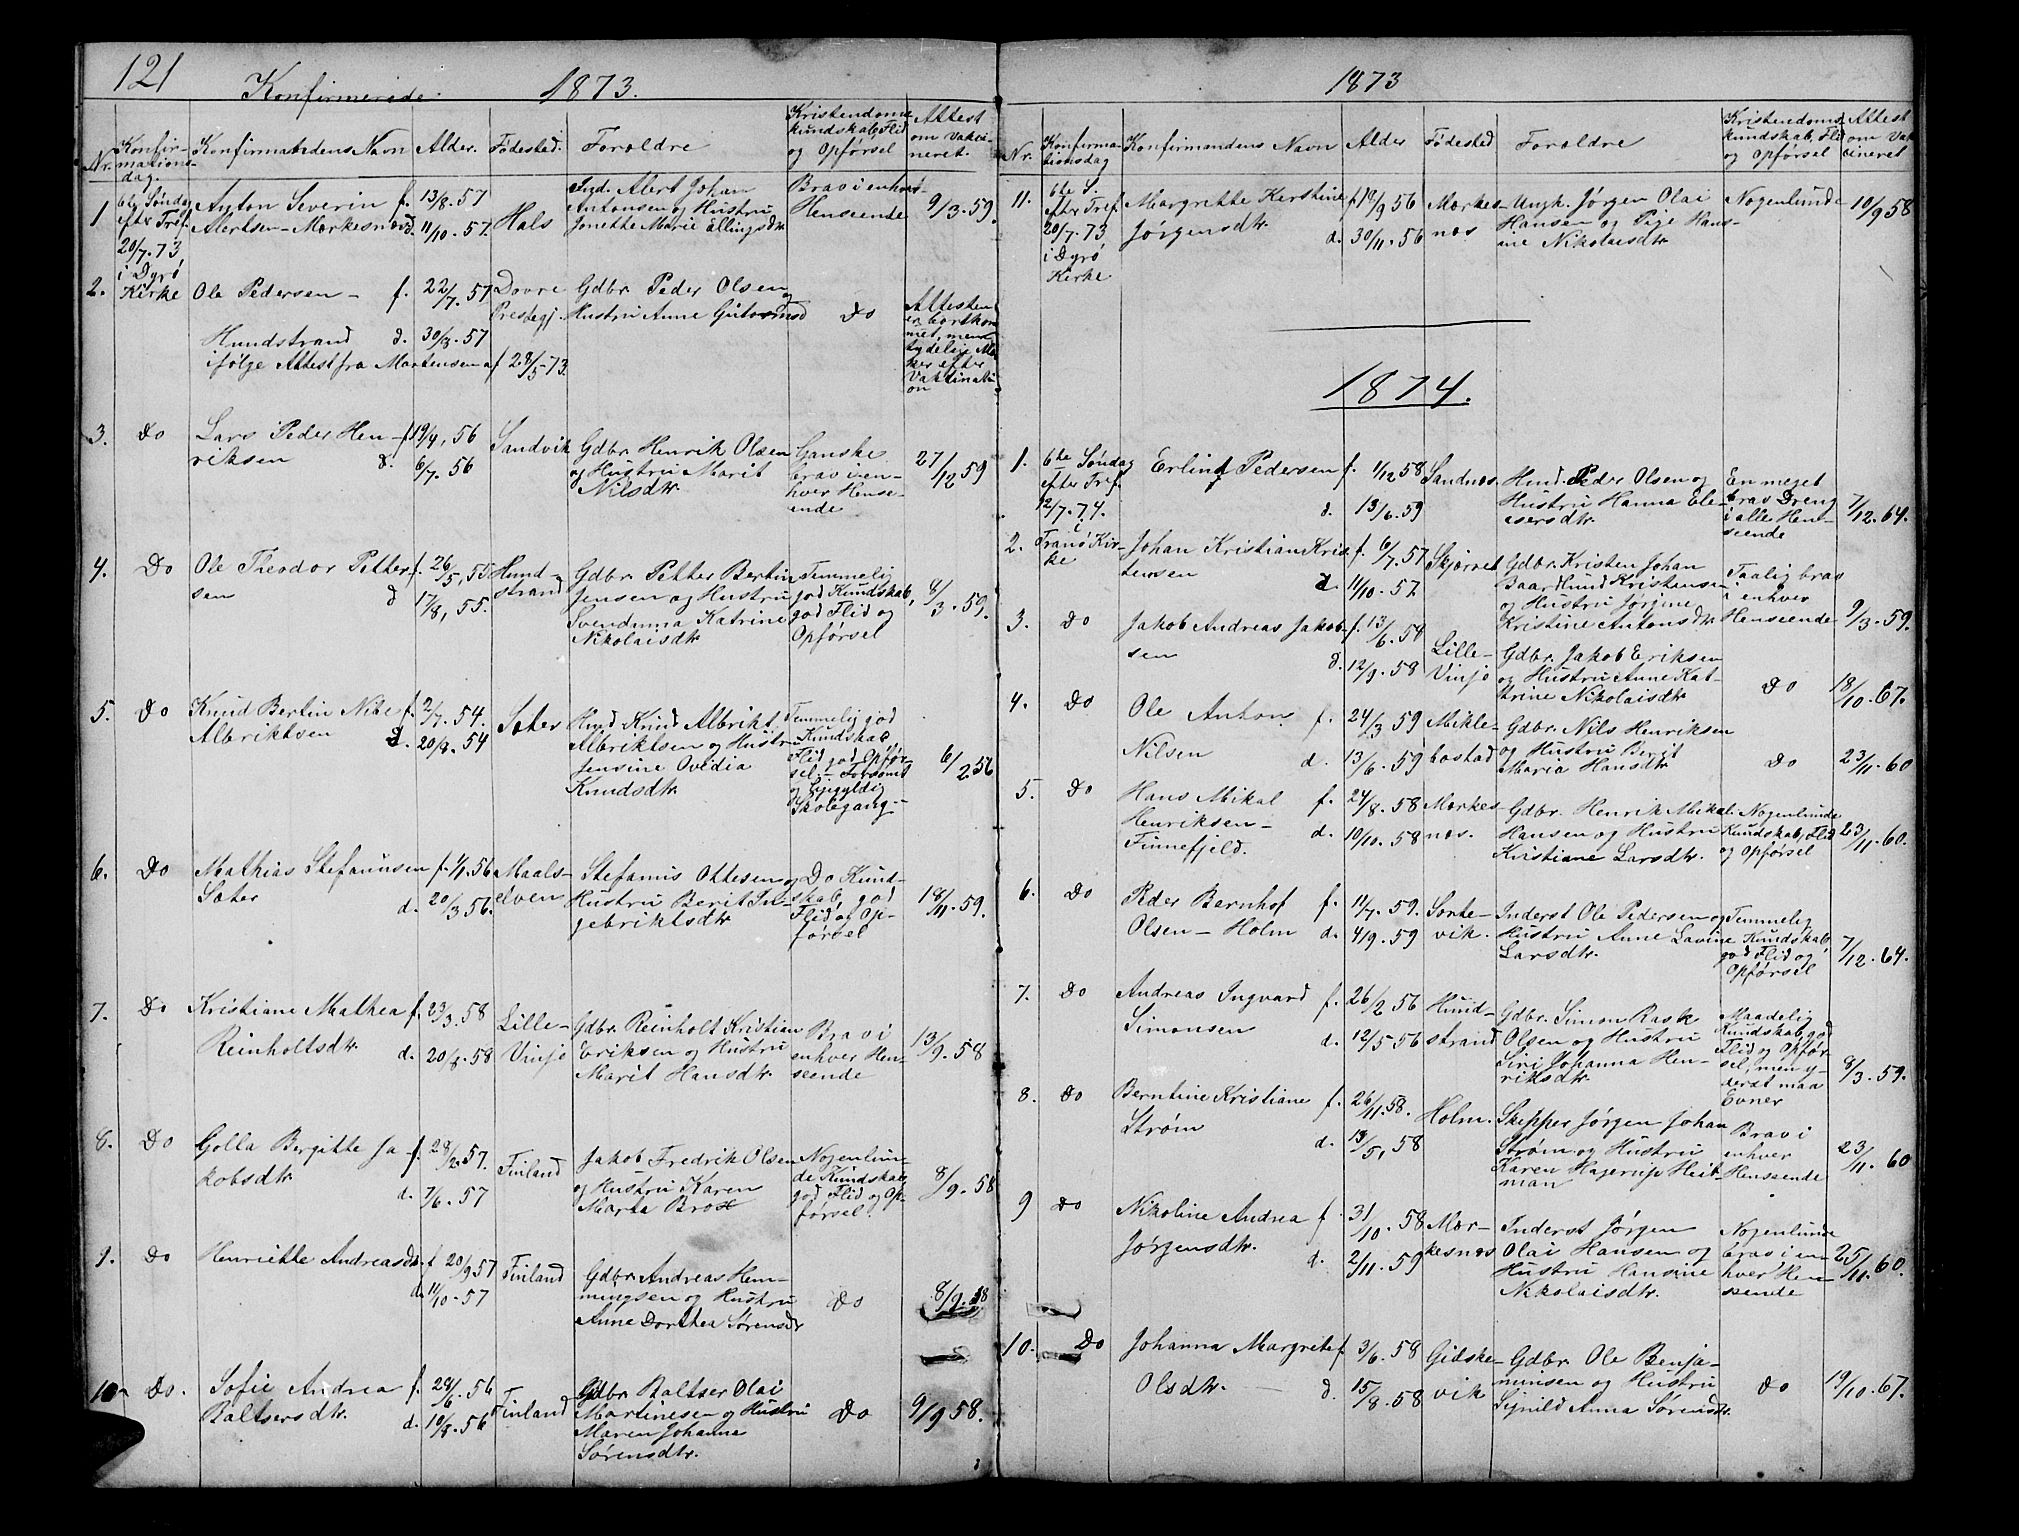 121
Konfirmerede.
1873.
Nr.
Konfir-
mations-
dag.
Konfirmandens Navn
Alder.
Fødested.
Foreldre
Kristendoms
kundskab, Flid
og Opførsel
Attest
om Vakci-
neret.
1
6te Søndag
efter Tref.
20/7.73,
i Dyrø
Kirke
Anton Severin
Alertsen - Mærkesnæs
f. 13/8.57
d. 11/10.57.
Hals
Ind. Alert Johan
Antonsen og Hustru
Jonette Marie Ellingsdtr
Brav i enhver
Henseende
9/3.59.
2.
Ole Pedersen -
Hundstrand
ifølge Attest fra Mortensen af 28/5-73.
f. 22/7.57
d. 30/8.57
Dovre
Prestegj.
Gdbr. Peder Olsen og
Hustru Anne Gutormsd
Do
Attesten
er bortkom
met, men
tydelige Mær
ker efter
Vakcinati
on
3.
Do
Lars Peder Hen-
riksen
f. 19/4, 56
d. 6/7.56
Sandvik
Gdbr. Henrik Olsen
og Hustru Marit
Nilsdtr.
Ganske
brav i en-
hver Hense-
ende
27/12 59
4.
Do
Ole Theodor Petter-
sen
f. 26/5, 55
d 17/8, 55.
Hund-
strand
Gdbr. Petter Bertin
Jensen og Hustru
Svendinna Katrine
Nikolaisdtr
Temmelig
god Kundskab,
god Flid og
Opførsel
8/3.59.
5.
Do
Knud Bertin Nibe
Albriktsen
f. 2/7.54.
d. 20/8.54
Sæter
Hmd Knud Albrikt
Albriktsen og Hustru
Jensine Ovidia
Knudsdtr.
Temmelig god
Kundskab,
Flid god Opfør-
sel. - Forsømt
og Ligegyldig
Skolegang. -
6/2 56
6.
Do
Mathias Stefanusen
Sæter
f. 1/1.56
d. 20/3 56.
Maals-
elven
Stefanus Ottesen og
Hustru Berit In-
gebriktsdtr
Do Kund-
skab, god
Flid og Op-
førsel
18/11.59.
7.
Do
Kristiane Mathea
Reinholtsdtr.
f. 23/3.58
d. 20/8.58
Lille-
Vinje
Gdbr. Reinholt Kristian
Eriksen og Hustru
Marit Hansdtr.
Brav i
enhver Hen-
seende
13/9.58
8.
Do
Golla Bergitte Ja-
kobsdtr.
f. 28/2.57.
d. 7/6.57
Finland
Jakob Fredrik Olsen
og Hustru Karen
Marta Brox
Nogenlun-
de Kundskab,
god Flid og Op-
førsel.
8/9.58
9.
Do
Henriette Andreasdtr.
f 20/9 57
d. 11/10.57
Finland
Gdbr. Andreas Hem-
mingsen og Hustru
Anne Dorthea Sørensdr
Do
8/9.58
10
Do.
Sofie Andrea
Baltsersdtr.
f. 28/6.56
d. 10/8.56
Finland
Gdbr. Baltser Olai
Martinesen og Hustru
Maren Johanna
Sørensdtr.
Do
9/9 58.
1873
Nr.
Konfirma-
tionsdag
Konfirmandens Navn
Alder
Fødested
Foreldre
Kristendoms
kundskab, Flid
og Opførsel
Attest
om Vak
cineret
11.
6te S.
efter Tref.
20/7.73
i Dyrø
Kirke
Margrethe Kerstine
Jørgensdtr.
f 19/9 56
d. 30/11.56
Mærkes-
næs
Ungk. Jørgen Olai
Hansen og Pige Hans-
ine Nikolaisdtr
Nogenlunde
10/9 58
1874.
1.
6te Søndag
efter Tref.
12/7.74.
i
Tranø Kir-
ke
Erling Pedersen
f. 1/12 58
d. 13/6.59
Sandnæs.
Hmd. Peder Olsen og
Hustru Hanna Ele-
asersdtr.
En meget
brav Dreng
i alle Hen-
seende
7/12.64.
2.
Johan Kristian Kris
tensen
f. 6/7.57
d. 11/10.57
Skjervet
Gdbr. Kristen Johan
Baar Hund Kristensen
og Hustru Jørgine
Kristine Antonsdtr
Taalig brav
i enhver
Henseende
9/3.59.
3.
Do
Jakob Andreas Jakob-
sen
f. 13/6.58
d. 12/9.58
Lille-
Vinje
Gdbr. Jakob Eriksen
og Hustru Anne Kat-
trine Nikolaisdtr
Do
18/10.67.
4.
Do
Ole Anton
Nilsen
f. 24/3 59
d. 13/6.59
Mikle-
bostad
Gdbr. Nils Henriksen
og Hustru Berit
Maria Hansdtr.
Do
23/11.60
5.
Do
Hans Mikal
Henriksen -
Finnefjeld.
f. 24/8.58
d. 10/10.58
Mærkes-
næs.
Gdbr. Henrik Mikal
Hansen og Hustru
Kristiane Larsdtr.
Nogenlunde
Kundskab, Flid
og Opførsel
23/11.60.
6.
Do
Peder Bernhof
Olsen - Holm
f. 11/7.59.
d. 4/9.59
Sørte-
vik.
Inderst Ole Pedersen og
Hustru Anne Lavine
Larsdtr.
Temmelig
Kundskab,
god Flid og
Opførsel
7/12.64.
7.
Do
Andreas Ingvard
Simonsen
f. 26/2 56
d. 12/5 56
Hund-
strand
Gdbr. Simon Rask
Olsen og Hustru
Siri Johanna Hen-
riksdtr.
Maadelig
Kundskab, god
Flid og Opfør-
sel, men y-
derst smaa
Evner
8/3.59.
8.
Do
Berntine Kristiane
Strøm
f. 26/11.58.
d. 13/5, 58
Holm.
Skipper Jørgen Johan
Strøm og Hustru
Karen Hagerup Heit-
man
Brav i
enhver
Henseende
23/11.60
9
Do
Nikoline Andrea
Jørgensdtr.
f. 31/10.58
d. 2/11.59
Mær-
kesnæs
Inderst Jørgen
Olai Hansen og
Hustru Hansine
Nikolaisdtr.
Nogenlunde
brav i en-
hver Hen-
seende
25/11.60.
10.
Do
Johanna Margrete
Olsdtr. -
f. 3/6.58
d. 15/8.58
Gidske-
vik
Gdbr. Ole Benja-
minsen og Hustru
Signild Anna Sørensdtr.
Do
19/10.67.